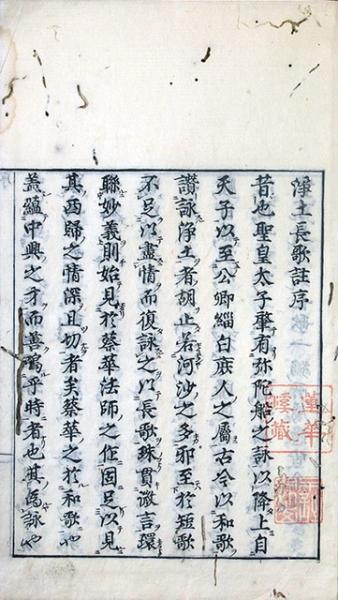 淨土長歌註序
昔也聖皇太子肇有弥陀船之詠以降上自
天子以至公卿緇白庶人之屬古今以和歌
讃詠淨土者胡止若河沙之多耶至於短歌
不足以盡情而復詠之以長歌珠貫微言環
聯妙義則始見於蔡華法師之作固足以見
其西歸之情深且切者矣蔡華之於和歌也
蓋蘊中興之才而善鳴乎時者也其為詠也
蓮華
藏